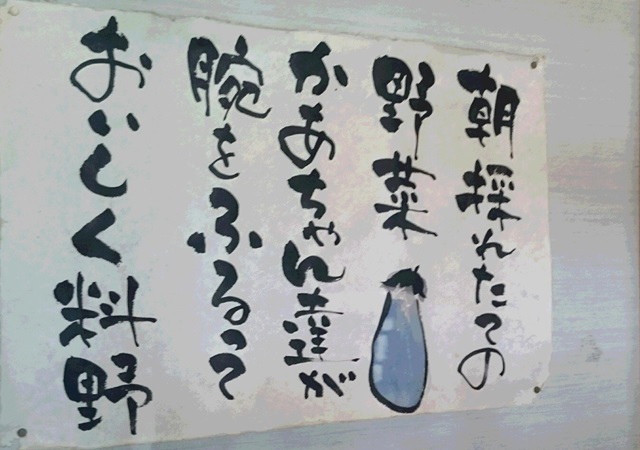 朝採れたての
野菜
かあちゃん達が
腕をふるって
おいしく料野